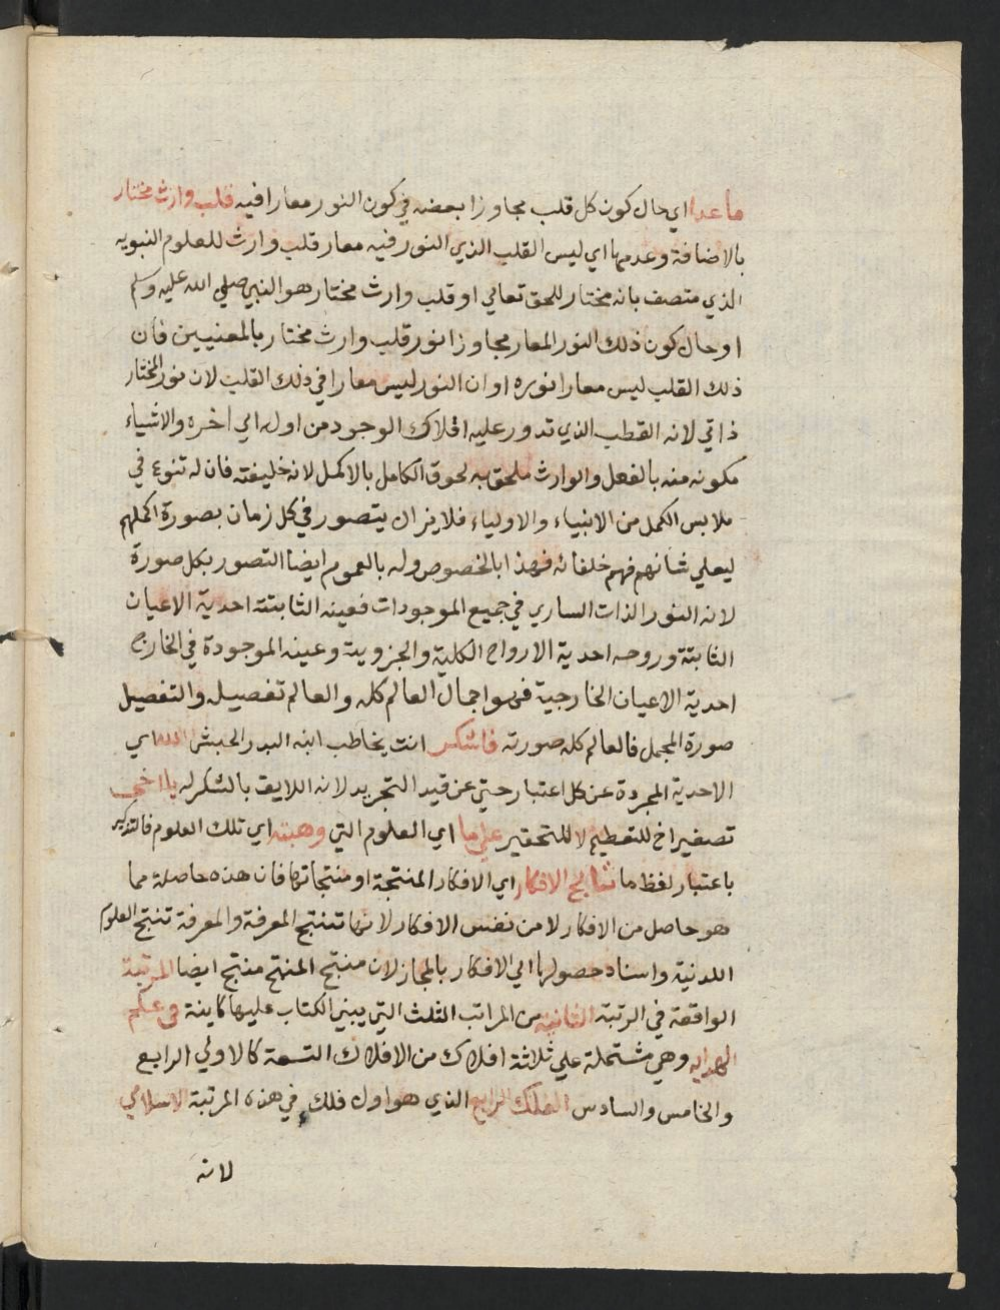 ما عدا اي حال كون كل قلب مجاوزا بعضه في كون النور معارا فيه قلب وارث مختار
بالاضافة وعدمها اي ليس القلب الذي النور فيه معار قلب وارث للعلوم النبويه
الذي متصف بانه مختار للحق تعالي او قلب وارث مختار هو النبي صلي الله عليه وسلم
او حال كون ذلك النور المعار مجاوزا نور قلب وارث مختار بالمعنيين فان
ذلك القلب ليس معارا نوره او ان النور ليس معارا في ذلك القلب لان نور المختار
ذاتي لانه القطب الذي تدور عليه افلاك الوجود من اوله الي اخره والاشياء
مكونه منه بالفعل والوارث ملحق به لحوق الكامل بالاكمل لانه خليفته فان له تنوع في
ملابس الكمل من الانبياء والاولياء فلا يزال يتصور في كل زمان بصورة اكملهم
ليعلي شانهم فهم خلفائه فهذا بالخصوص وله بالعموم ايضا التصور بكل صورة
لانه النور الذات الساري في جميع الموجودات فعينه الثابتة احدية الاعيان
الثابتة وروحه احدية الارواح الكلية والجزوية وعينه الموجودة في الخارج
احدية الاعيان الخارجية فهو اجمال العالم كله والعالم تفصيله والتفصيل
صورة المجمل فالعالم كله صورته فاشكر انت يخاطب ابنه البدر الحبشي الله اي
الاحدية المجردة عن كل اعتبار حتي عن قيد التجريد لانه اللايق بالشكر له يا اخي
تصغير اخ للتعظيم لا للتحقير علي ما اي العلوم التي وهبته اي تلك العلوم فالتذكير
باعتبار لفظ ما نتايج الافكار اي الافكار المنتجة او منتجاتها فان هذه حاصلة مما
هو حاصل من الافكار لا من نفس الافكار لانها تنتج المعرفة والمعرفة تنتج العلوم
اللدنية واسناد حصولها الي الافكار بالمجاز لان منتج المنتج منتج ايضا المرتبة
الواقعة في الرتبة الثانية من المراتب الثلث التي يبني الكتاب عليها كاينة في علم
الهداية وهي مشتملة علي ثلاثة افلاك من الافلاك التسعة كالاولي الرابع
والخامس والسادس الفلك الرابع الذي هو اول فلك في هذه المرتبة الاسلامي
لانه